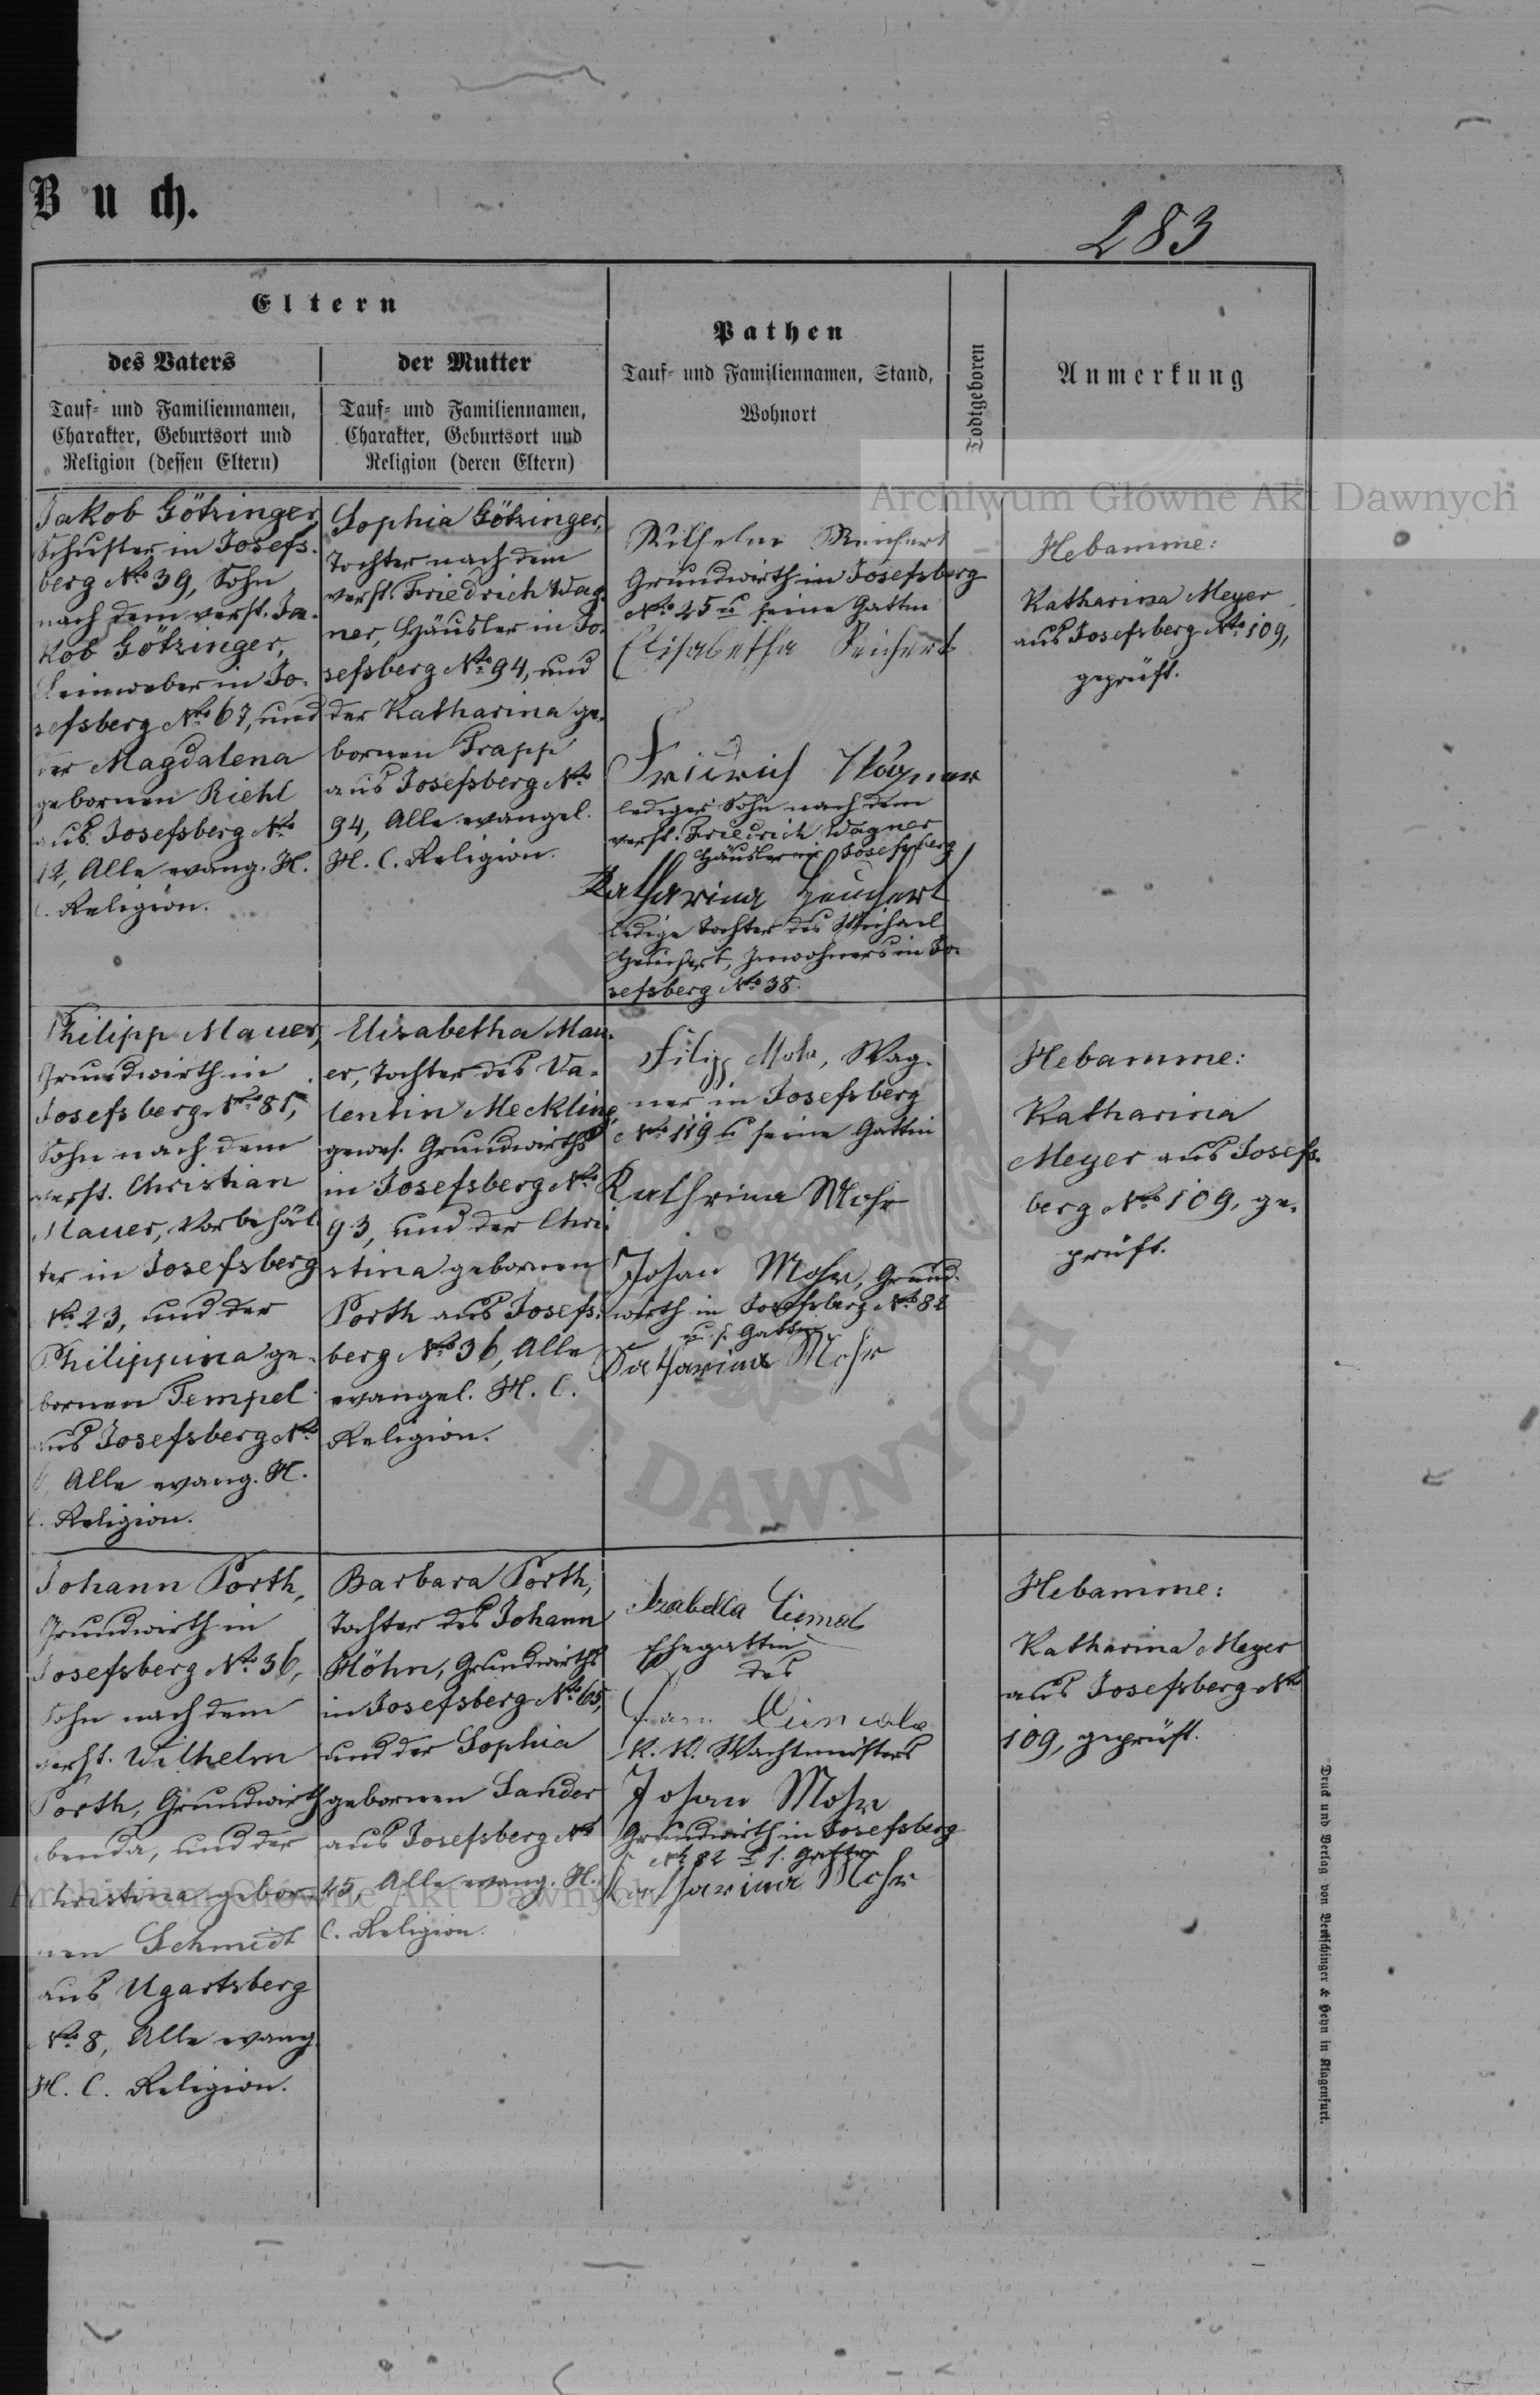 Buch.
283
Eltern
des Vaters
Tauf- und Familiennamen,
Charakter, Geburtsort und
Religion (dessen Eltern)
der Mutter
Tauf- und Familiennamen,
Charakter, Geburtsort und
Religion (deren Eltern)
Pathen
Tauf- und Familiennamen, Stand,
Wohnort
Todtgeboren
Anmerkung
Jakob Götzinger,
Schuster in Josefs-
berg No 39, Sohn
nach dem verst. Ja-
kob Götzinger,
Leinweber in Jo-
sefsberg No 67, und
der Magdalena
gebornen Riehl
aus Josefsberg No
12, Alle evang. H.
C. Religion.
Sophia Götzinger,
Tochter nach dem
verst. Friedrich Wag-
ner, Häusler in Jo-
sefsberg No 94, und
der Katharina ge-
bornen Trapp
aus Josefsberg No
94, Alle evangel.
H. C. Religion.
Wilhelm Reichert
Grundwirth in Josefsberg
No 25 u seine Gattin
Elisabetha Reichert
Fridrich Wagner
lediger Sohn nach dem
verst. Friedrich Wagner
Häusler in Josefsberg
Katharina Heuchert
ledige Tochter des Michael
Heuchert, Inwohners in Jo-
sefsberg No 38.
Hebamme:
Katharina Meyer
aus Josefsberg No 109,
geprüft.
Philipp Mauer,
Grundwirth in
Josefsberg No 81,
Sohn nach dem
verst. Christian
Mauer, Vorbehäl-
ter in Josefsberg
No 23, und der
Philippina ge-
bornen Tempel
aus Josefsberg No
Alle evang. H.
C. Religion.
Elisabetha Mau-
er, Tochter des Va-
lentin Meckling,
gewes. Grundwirths
in Josefsberg No
93, und der Chri-
stina gebornen
Porth aus Josefs-
berg No 36, Alle
evangel. H. C.
Religion.
Filipp Mohr, Wag-
ner in Josefsberg
No 119 u seine Gattin
Kathrina Mohr
Johan Mohr, Grund-
wirth in Josefsberg No 82
u. s. Gattin
Katharina Mohr
Hebamme:
Katharina
Meyer aus Josefs-
berg No 109, ge-
prüft.
Johann Porth,
Grundwirth in
Josefsberg No 36,
Sohn nach dem
verst. Wilhelm
Porth, Grundwirth
ebenda, und der
Christina gebor-
nen Schmidt
aus Ugartsberg
No 8, Alle evang.
H. C. Religion.
Barbara Porth,
Tochter des Johann
Höhn, Grundwirths
in Josefsberg No 65,
und der Sophia
gebornen Sander
aus Josefsberg No
25, Alle evang. H.
C. Religion.
Izabella
Ehegattin
des
K. K. Wachtmeisters
Johan Mohr
Grundwirth in Josefsberg
No 82 u s. Gattin
Katharina Mohr
Hebamme:
Katharina Meyer
aus Josefsberg No
109, geprüft.
Druck und Verlag von Bertschinger & Heyn in Klagenfurt.
Archiwum Główne Akt Dawnych
Archiwum Główne Akt Dawnych
AKT DAWNYCH